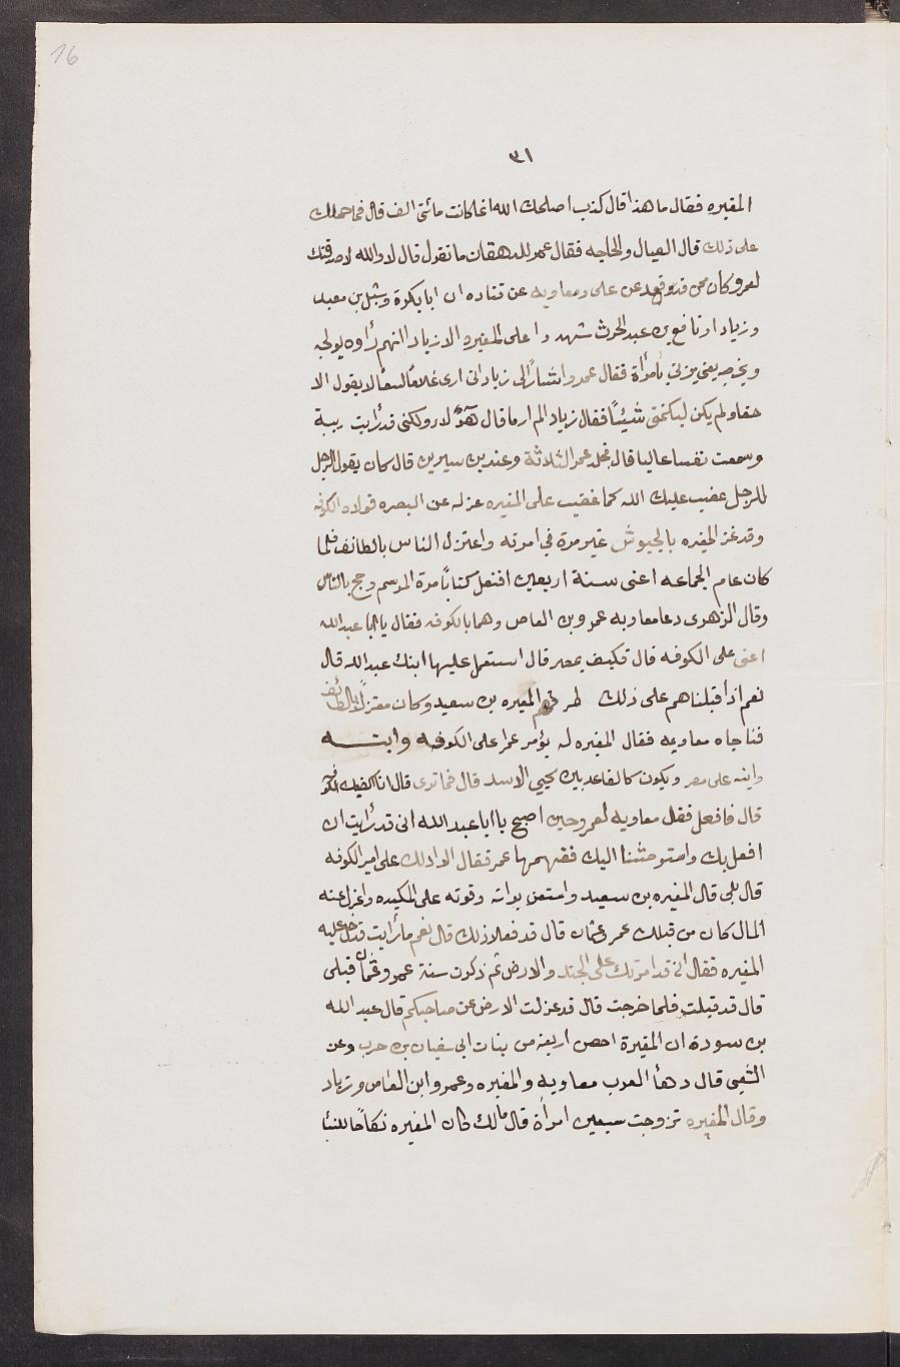 16
٣١
المغيره فقال ما هذا قال كذب اصلحك الله انما كانت مائتى الف قال فما حملك
على ذلك قال العيال والحاجه فقال عمر للدهقان ما تقول قال لا والله لاصدقنك
لعمرو كان ممن قد على ومعاويه عن قتاده ان ابا بكرة وشبل بن معبد
وزياد ا ونافع بن عبد الحرث شهدوا على المغيره الا زياد انهم رأوه يولجه
ويخرجه يعنى يزنى بامرأة فقال عمر واشار الى زياد انى ارى غلاما لا يقول الا
حقا ولم يكن ليكتمنى شيئًا فقال زياد الم ار ما قال هؤلاء ولكنى قد رايت ريبة
وسمعت نفسا عاليا قال فجلد عمر الثلاثة وعند بن سيرين قال كان يقول الرجل
للرجل غضب عليك الله كما غضب على المغيره عزله عن البصره فولاه الكوفه
وقد غز المغيره بالجيوش غير مرة فى امرته واعتزل الناس بالطائف فلما
كان عام الجماعه اعنى سنة اربعين افتعل كتابًا مرة الموسم وحج بالناس
وقال الزهرى دعا معاويه عمرو بن العاص وهما بالكوفه فقال يا ابا عبد الله
اعنى على الكوفه قال فكيف بمصر قال استعمل عليها ابنك عبد الله قال
نعم اذا قبلناهم على ذلك طرقهم المغيره بن سعيد وكان معتزلًا بالطائف
فناجاه معاويه فقال المغيره له يؤمر عمرا على الكوفه وابنه
وابنه على مصر ويكون كالقاعد بين لحيى الاسد قال فما ترى قال انا اكفيك الكوفه
قال فافعل فقل معاويه لعمرو حين اصبح يا ابا عبد الله انى قد رايت ان
افعل بك واستوحشنا اليك ففهمها عمر فقال الا ادلك على امير الكوفه
قال بلى قال المغيره بن سعيد واستعن براته وقوته على المكيده واعزل عنه
المال كان من قبلك عمر وعثمان قال قد فعلا ذلك قال نعم ما رايت فدخل عليه
المغيره فقال انى قد امرتك على الجند والارض ثم ذكرت سنة عمر وعثمان قبلى
قال قد قبلت فلما خرجت قال قد عزلت الارض عن صاحبكم قال عبد الله
بن سودة ان المغيرة احصن اربعه من بنات ابى سفيان بن حرب وعن
الشعبى قال دهأ العرب معاويه والمغيره وعمرو ابن العاص وزياد
وقال المغيره تزوجت سبعين امرأة قال مالك كان المغيره نكاحا للنسأ